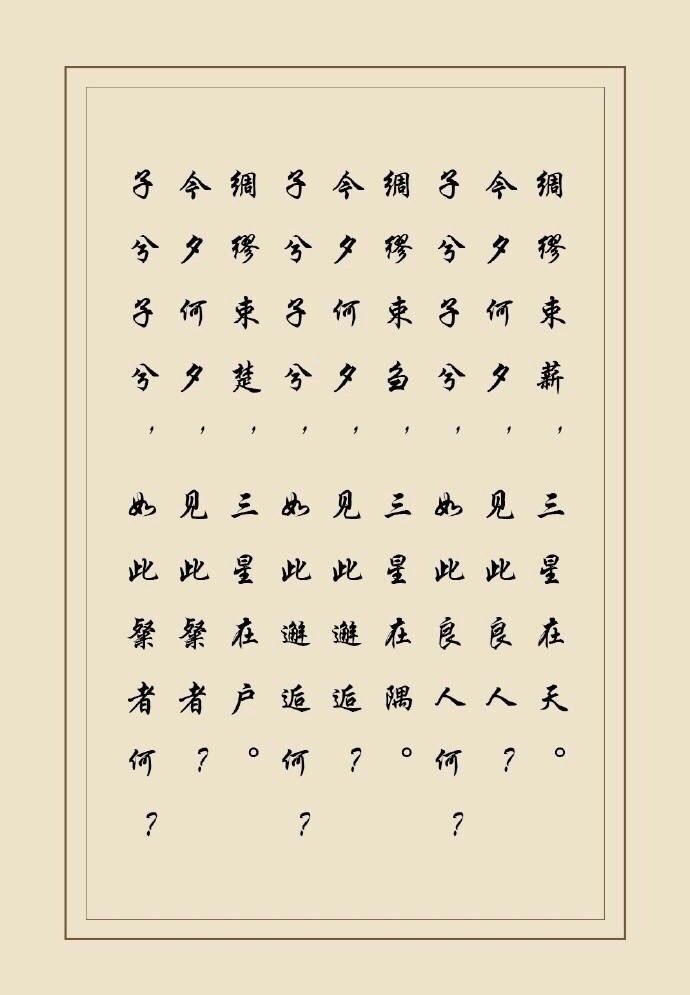 绸缪束薪，三星在天。
今夕何夕，见此良人？
子兮子兮，如此良人何？
绸缪束刍，三星在隅。
今夕何夕，见此邂逅？
子兮子兮，如此邂逅何？
绸缪束楚，三星在户。
今夕何夕，见此粲者？
子兮子兮，如此粲者何？